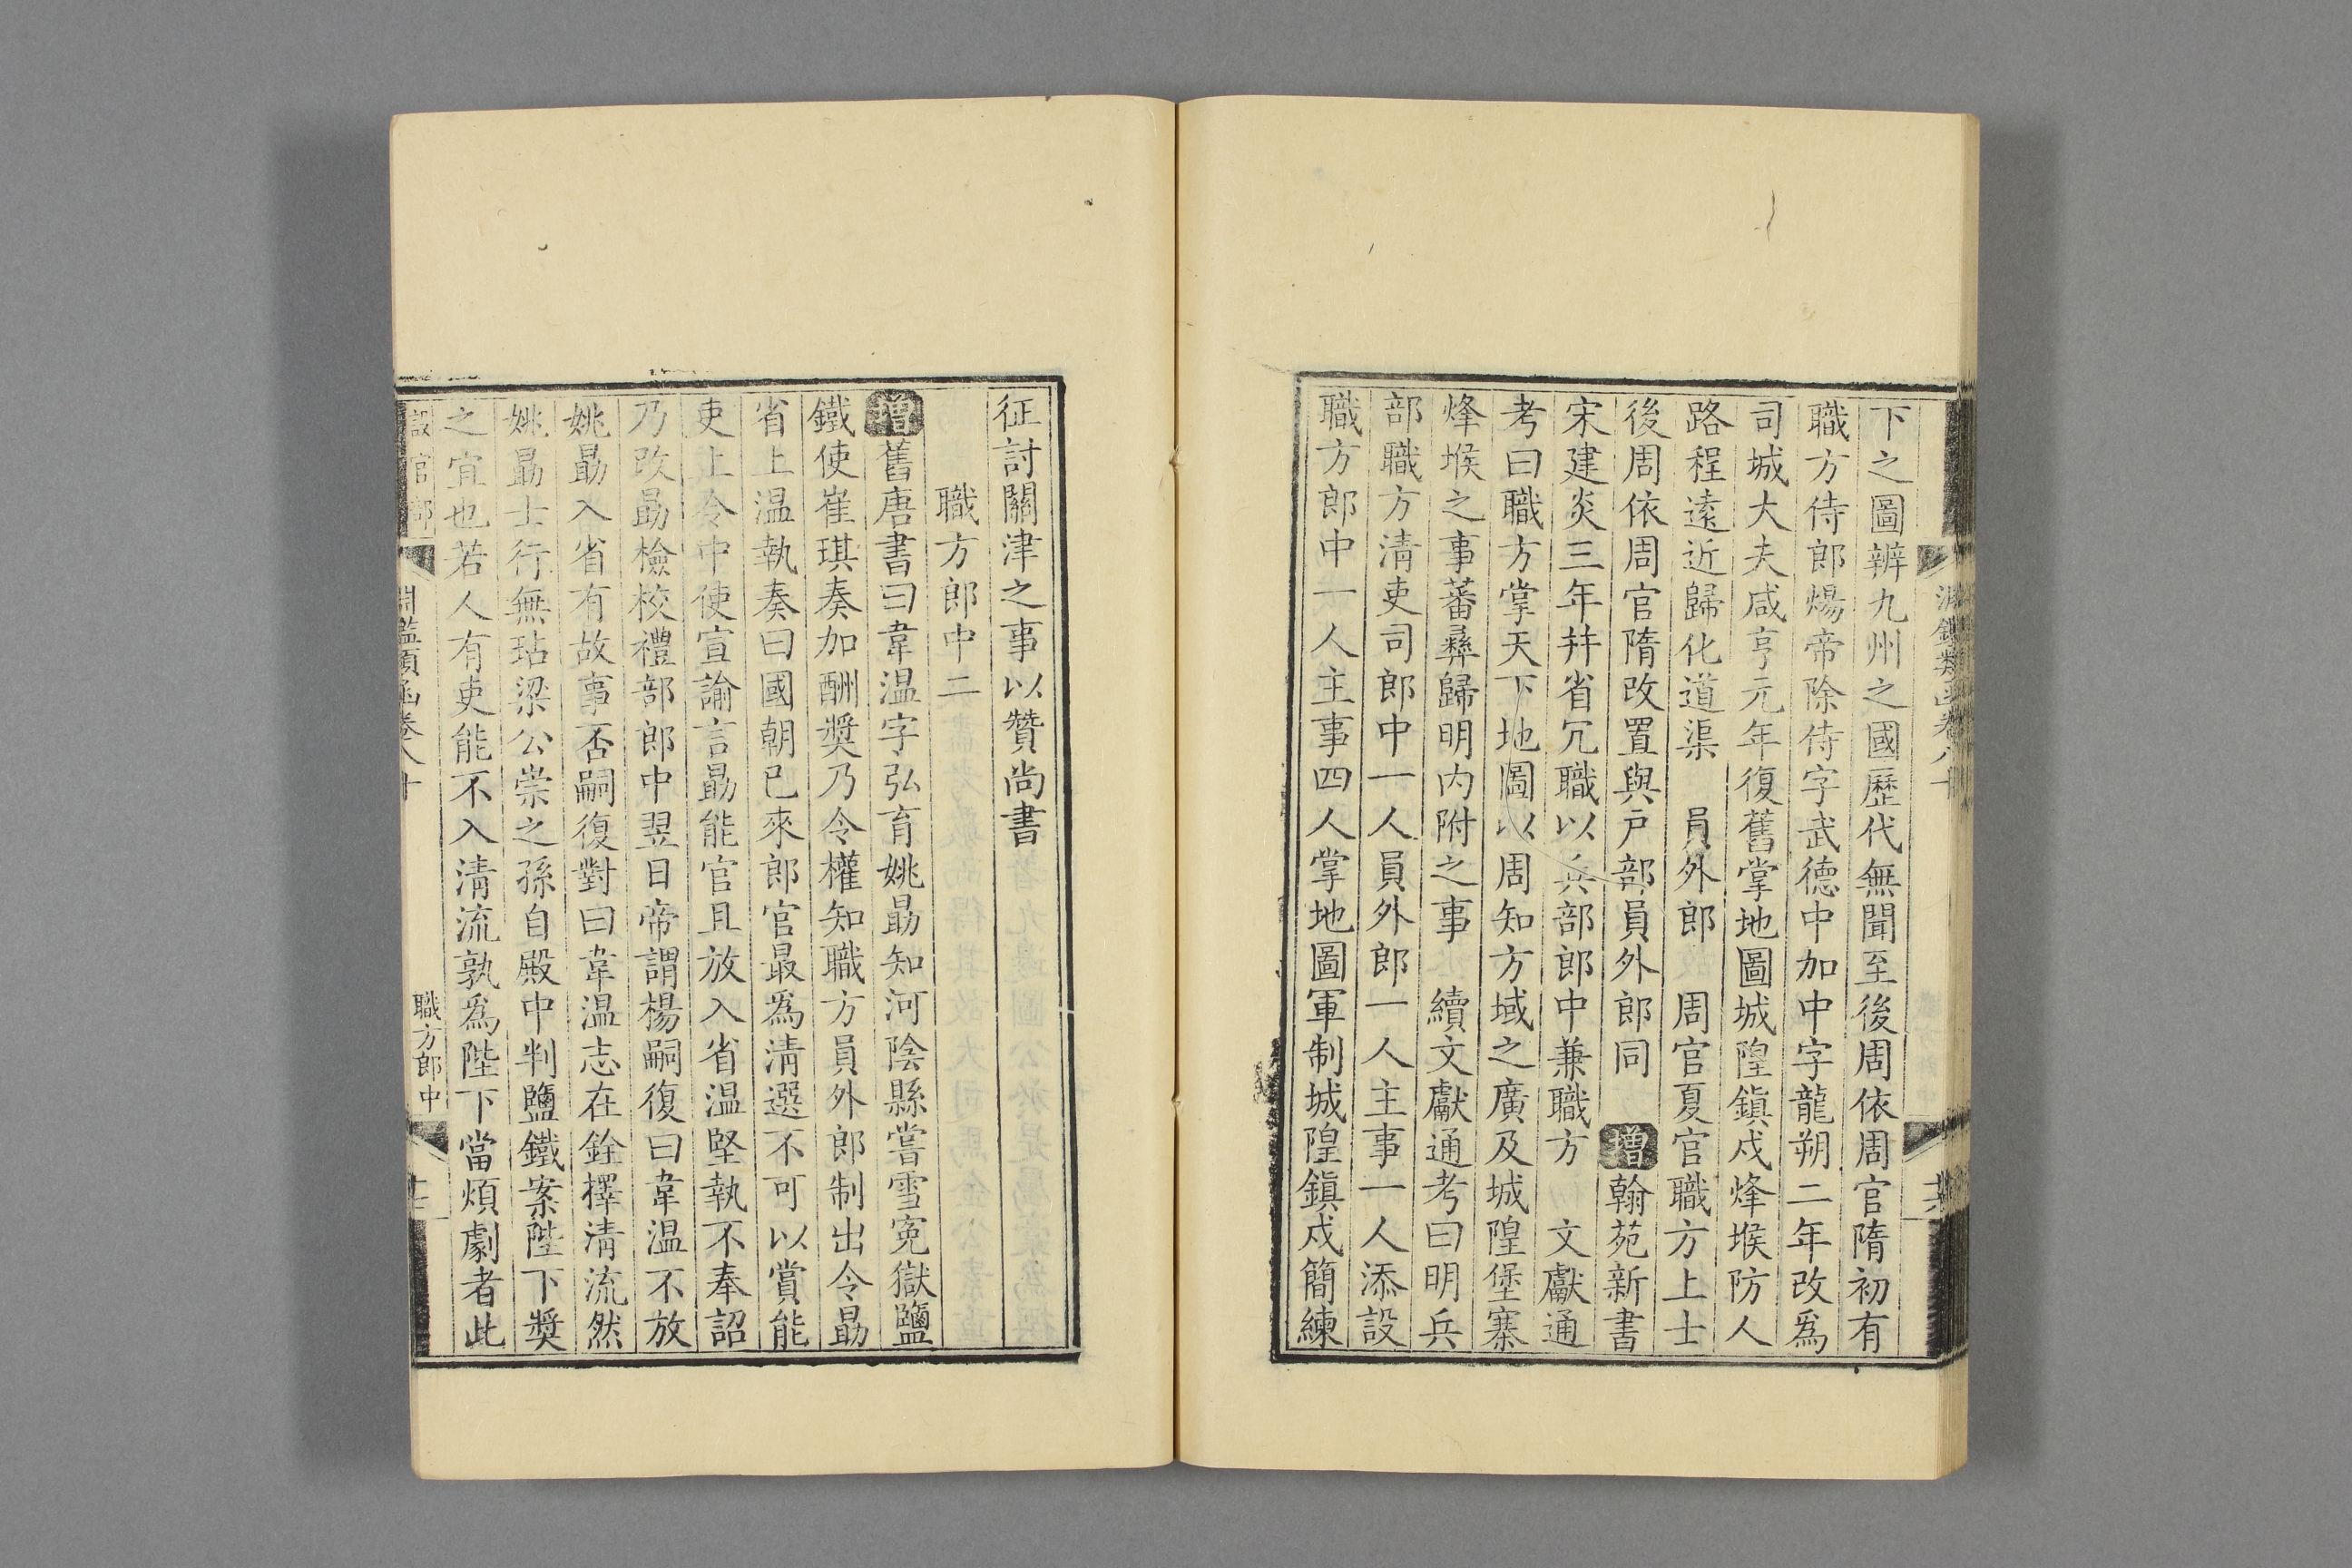 下之圖辨九州之國歷代無聞至後周依周官隋初有
職方侍郎煬帝除侍字武德中加中字龍朔二年改爲
司城大夫咸亨元年復舊掌地圖城隍鎭戍烽堠防人
路程遠近歸化道渠 員外郎 周官夏官職方上士
後周依周官隋改置與戶部員外郎同 增翰苑新書
宋建炎三年幷省冗職以兵部郎中兼職方 文獻通
考曰職方掌天下地圖以周知方域之廣及城隍堡寨
烽堠之事蕃彝歸明內附之事 續文獻通考曰明兵
部職方淸吏司郎中一人員外郎一人主事一人添設
職方郎中一人主事四人掌地圖軍制城隍鎭戍簡練
征討關津之事以贊尚書
職方郎中二
增舊唐書曰韋温字弘育姚勗知河陰縣嘗雪寃獄鹽
鐵使崔琪奏加酬獎乃令權知職方員外郎制出令勗
省上温執奏曰國朝已來郎官最爲淸選不可以賞能
吏上令中使宣諭言勗能官且放入省温堅執不奉詔
乃改勗檢校禮部郎中翌日帝謂楊嗣復曰韋温不放
姚勗入省有故事否嗣復對曰韋温志在銓擇淸流然
姚勗士行無玷梁公崇之孫自殿中判鹽鐵案陛下獎
之宜也若人有吏能不入淸流孰爲陛下當煩劇者此
設官部 淵鑑類函卷八十 職方郎中